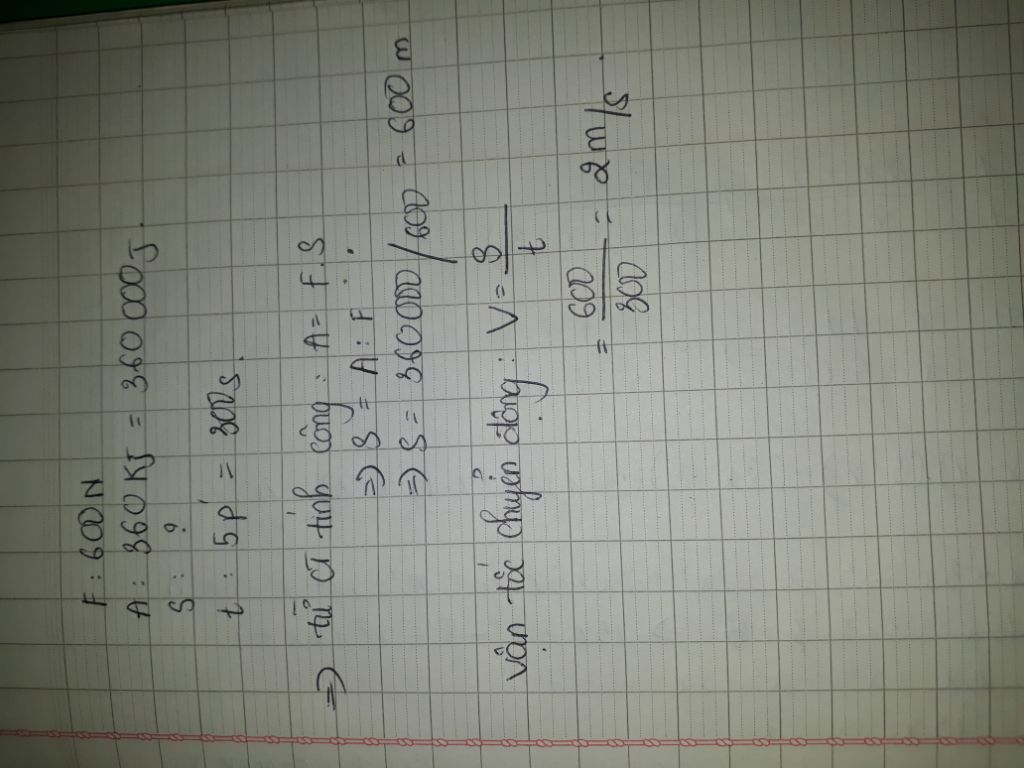 F: 600N
A: 360KJ = 360 000J.
S: ?
t: 5p' = 300s.
=) từ CT tính công: A = F.S
=) S = A: F
=) S = 360000/600 = 600 m
vận tốc chuyển động: V = S/t
= 600/300 = 2m/s.